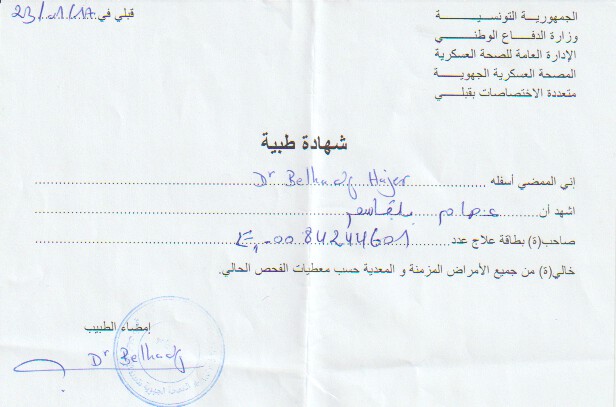 الجمهورية التونسية
وزارة الدفاع الوطني
الإدارة العامة للصحة العسكرية
المصحة العسكرية الجهوية
متعددة الاختصاصات بقبلي
قبلي في 23/01/17
شهادة طبية
إني الممضي أسفله Dr Belhadj Hajer
اشهد أن عصام بلقاسم
صاحب(ة) بطاقة علاج عدد 0084244601
خالي(ة) من جميع الأمراض المزمنة و المعدية حسب معطيات الفحص الحالي.
إمضاء الطبيب
Dr Belhadj